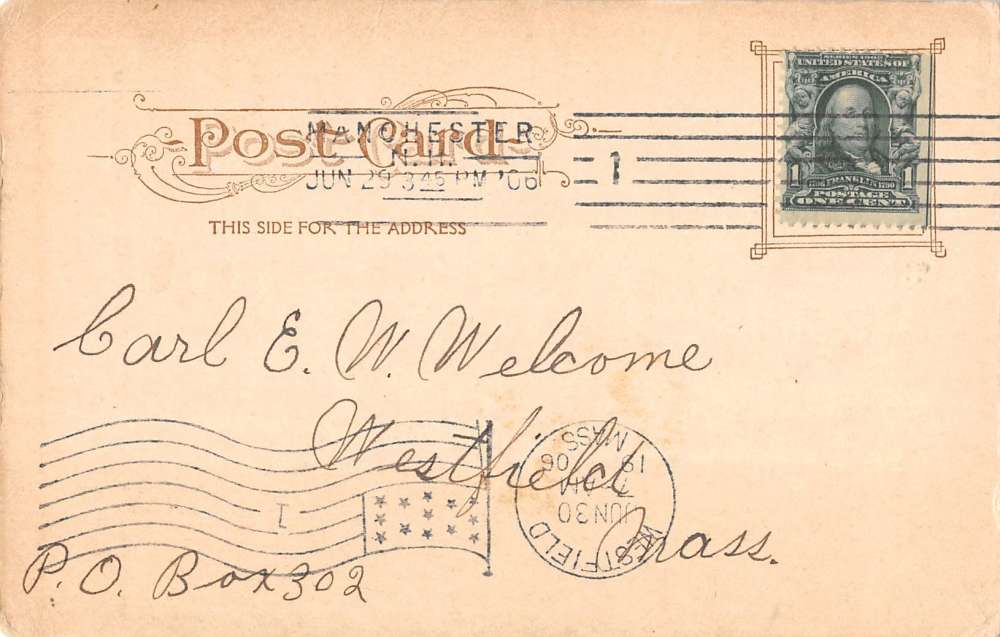 SERIES 1902
UNITED STATES OF
AMERICA
1 1
1706 FRANKLIN 1790
POSTAGE
ONE CENT
Post Card
MANCHESTER
N.H.
JUN 29 3 45 PM '06
1
THIS SIDE FOR THE ADDRESS
Carl E. W. Welcome
Westfield
Mass.
P.O. Box 302
1
WESTFIELD
JUN 30
7 AM
19 06
MASS